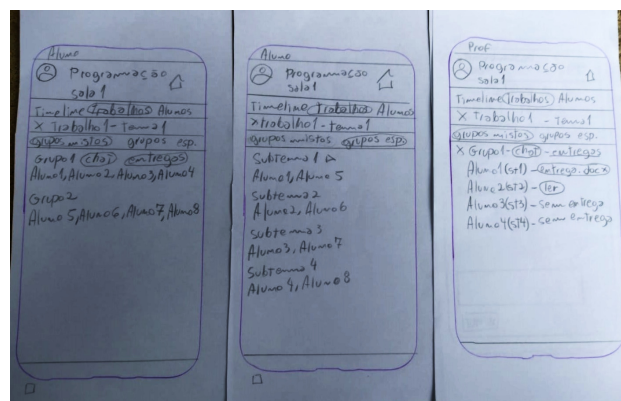 Aluno
Programação
sala 1
Timeline Trabalhos Alunos
X Trabalho 1 - Tema 1
grupos mistos grupos esp.
Grupo 1 chat entregas
Aluno 1, Aluno 2, Aluno 3, Aluno 4
Grupo 2
Aluno 5, Aluno 6, Aluno 7, Aluno 8
Aluno
Programação
Sala 1
Timeline Trabalhos Alunos
X trabalho 1 - tema 1
grupos mistos grupos esp.
Subtema 1
Aluno 1, Aluno 5
subtema 2
Aluno 2, Aluno 6
subtema 3
Aluno 3, Aluno 7
Subtema 4
Aluno 4, Aluno 8
Prof
Programação
sala 1
Timeline Trabalhos Alunos
X Trabalho 1 - Tema 1
grupos mistos grupos esp.
X Grupo 1 - chat - entregas
Aluno 1 (st1) - entrega.docx
Aluno 2 (st2) - ler
Aluno 3 (st3) - sem entrega
Aluno 4 (st4) - sem entrega